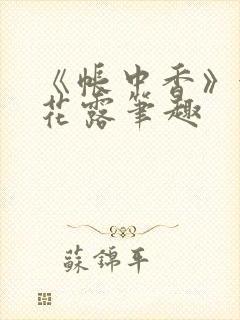 《帐中香》
花露笔趣
苏锦年